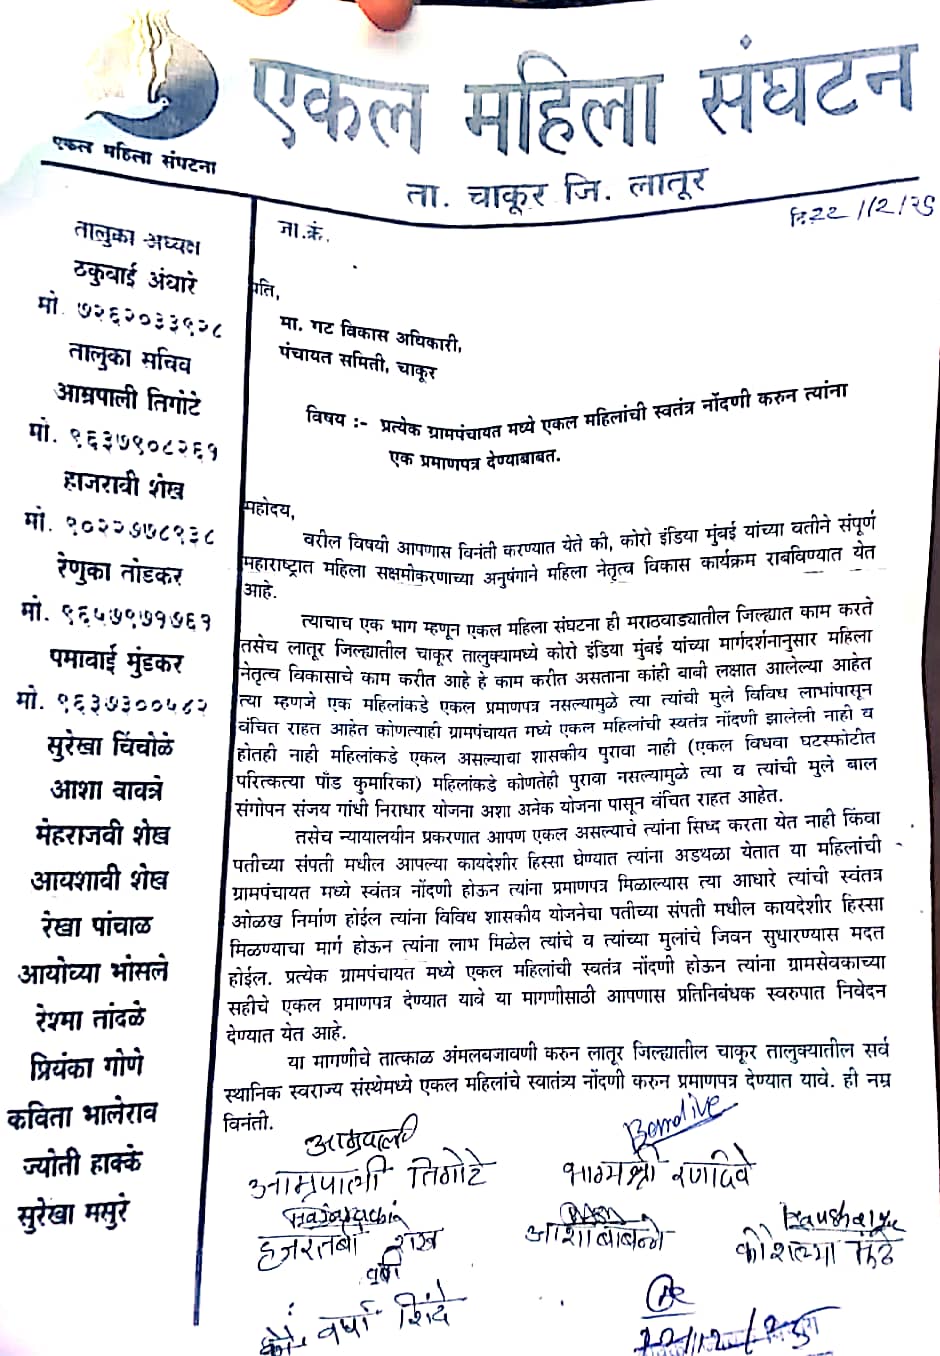 एकल महिला संघटन
एकल महिला संघटना
ता. चाकूर जि. लातूर
दि.२२/१२/२५
तालुका अध्यक्ष
ठकुबाई अंधारे
मो. ७२६२०३३९२८
तालुका सचिव
आम्रपाली तिगोटे
मो. ९६३७९०८२६१
हाजराबी शेख
मो. ९०२२७७८९३८
रेणुका तोडकर
मो. ९६५७९७१७६१
पमाबाई मुंडकर
मो. ९६३७३००५८२
सुरेखा चिंचोळे
आशा वावत्रे
मेहराजबी शेख
आयशाबी शेख
रेखा पांचाळ
आयोध्या भोसले
रेश्मा तांदळे
प्रियंका गोणे
कविता भालेराव
ज्योती हाक्के
सुरेखा मसुरे
जा.क्रं.
प्रति,
मा. गट विकास अधिकारी,
पंचायत समिती, चाकूर
विषय :- प्रत्येक ग्रामपंचायत मध्ये एकल महिलांची स्वतंत्र नोंदणी करुन त्यांना
एक प्रमाणपत्र देण्याबाबत.
महोदय,
वरील विषयी आपणास विनंती करण्यात येते की, कोरो इंडिया मुंबई यांच्या वतीने संपूर्ण
महाराष्ट्रात महिला सक्षमीकरणाच्या अनुषंगाने महिला नेतृत्व विकास कार्यक्रम राबविण्यात येत
आहे.
त्याचाच एक भाग म्हणून एकल महिला संघटना ही मराठवाड्यातील जिल्ह्यात काम करते
तसेच लातूर जिल्ह्यातील चाकूर तालुक्यामध्ये कोरो इंडिया मुंबई यांच्या मार्गदर्शनानुसार महिला
नेतृत्व विकासाचे काम करीत आहे हे काम करीत असताना कांही बाबी लक्षात आलेल्या आहेत
त्या म्हणजे एक महिलांकडे एकल प्रमाणपत्र नसल्यामुळे त्या त्यांची मुले विविध लाभांपासून
वंचित राहत आहेत कोणत्याही ग्रामपंचायत मध्ये एकल महिलांची स्वतंत्र नोंदणी झालेली नाही व
होतही नाही महिलांकडे एकल असल्याचा शासकीय पुरावा नाही (एकल विधवा घटस्फोटीत
परित्कत्या पौंड कुमारिका) महिलांकडे कोणतेही पुरावा नसल्यामुळे त्या व त्यांची मुले बाल
संगोपन संजय गांधी निराधार योजना अशा अनेक योजना पासून वंचित राहत आहेत.
तसेच न्यायालयीन प्रकरणात आपण एकल असल्याचे त्यांना सिध्द करता येत नाही किंवा
पतीच्या संपती मधील आपल्या कायदेशीर हिस्सा घेण्यात त्यांना अडथळा येतात या महिलांची
ग्रामपंचायत मध्ये स्वंतत्र नोंदणी होऊन त्यांना प्रमाणपत्र मिळाल्यास त्या आधारे त्यांची स्वंतत्र
ओळख निर्माण होईल त्यांना विविध शासकीय योजनेचा पतीच्या संपती मधील कायदेशीर हिस्सा
मिळण्याचा मार्ग होऊन त्यांना लाभ मिळेल त्यांचे व त्यांच्या मुलांचे जिवन सुधारण्यास मदत
होईल. प्रत्येक ग्रामपंचायत मध्ये एकल महिलांची स्वतंत्र नोंदणी होऊन त्यांना ग्रामसेवकाच्या
सहीचे एकल प्रमाणपत्र देण्यात यावे या मागणीसाठी आपणास प्रतिनिबंधक स्वरुपात निवेदन
देण्यात येत आहे.
या मागणीचे तात्काळ अंमलबजावणी करुन लातूर जिल्ह्यातील चाकूर तालुक्यातील सर्व
स्थानिक स्वराज्य संस्थेमध्ये एकल महिलांचे स्वातंत्र्य नोंदणी करुन प्रमाणपत्र देण्यात यावे. ही नम्र
विनंती.
आम्रपाली
आम्रपाली तिगोटे
भाग्यश्री रणदिवे
हजरतबी शेख
Kaushalya
कौशल्या मुंढे
वर्षा शिंदे